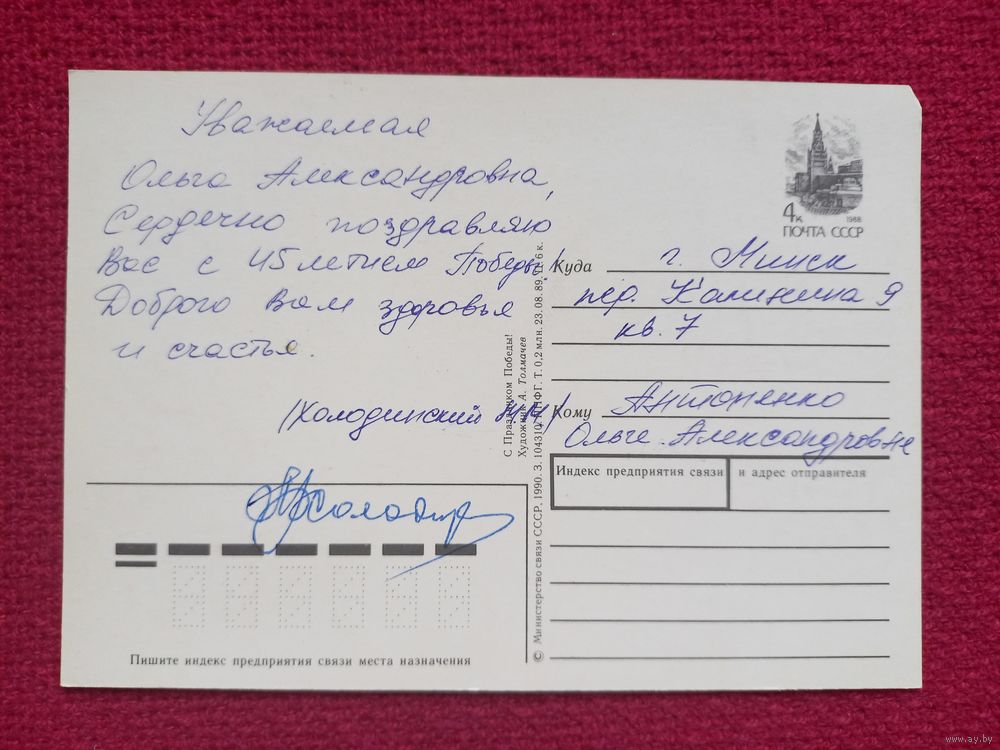 Уважаемая
Ольга Александровна,
Сердечно поздравляю
Вас с 45 летием Победы!
Доброго Вам здоровья
и счастья.
(Холодинский
Пишите индекс предприятия связи места назначения
С Праздником Победы!
Художник А. Толмачев
© Министерство связи СССР. 1990. З. 104310. ППФГ. Т. 0,2 млн. 23.08.89. Ц. 6 к.
4к 1988
ПОЧТА СССР
Куда г. Минск
пер. Калинина 9
кв. 7
Кому Антоненко
Ольге Александровне
Индекс предприятия связи и адрес отправителя
www.ay.by